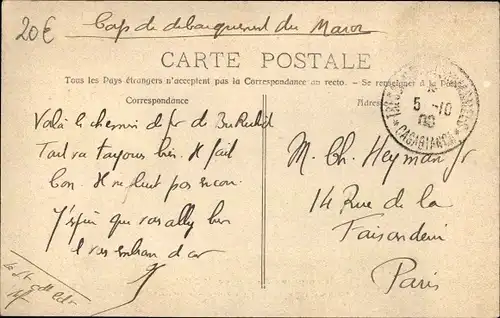 20€
Corps de debarquement du Maroc
CARTE POSTALE
Tous les Pays étrangers n'acceptent pas la Correspondance au recto. - Se renseigner à la Poste
Correspondance
Adresse
5 -10
08
* CASABLANCA *
Voilà le chemin de fer de
Tout va toujours bien. Il fait
bon. Il ne pleut pas encore.
J'espère que vous allez bien
& vous embrasse
M. Ch. Heyman Jr
14 Rue de la
Faisanderie
Paris